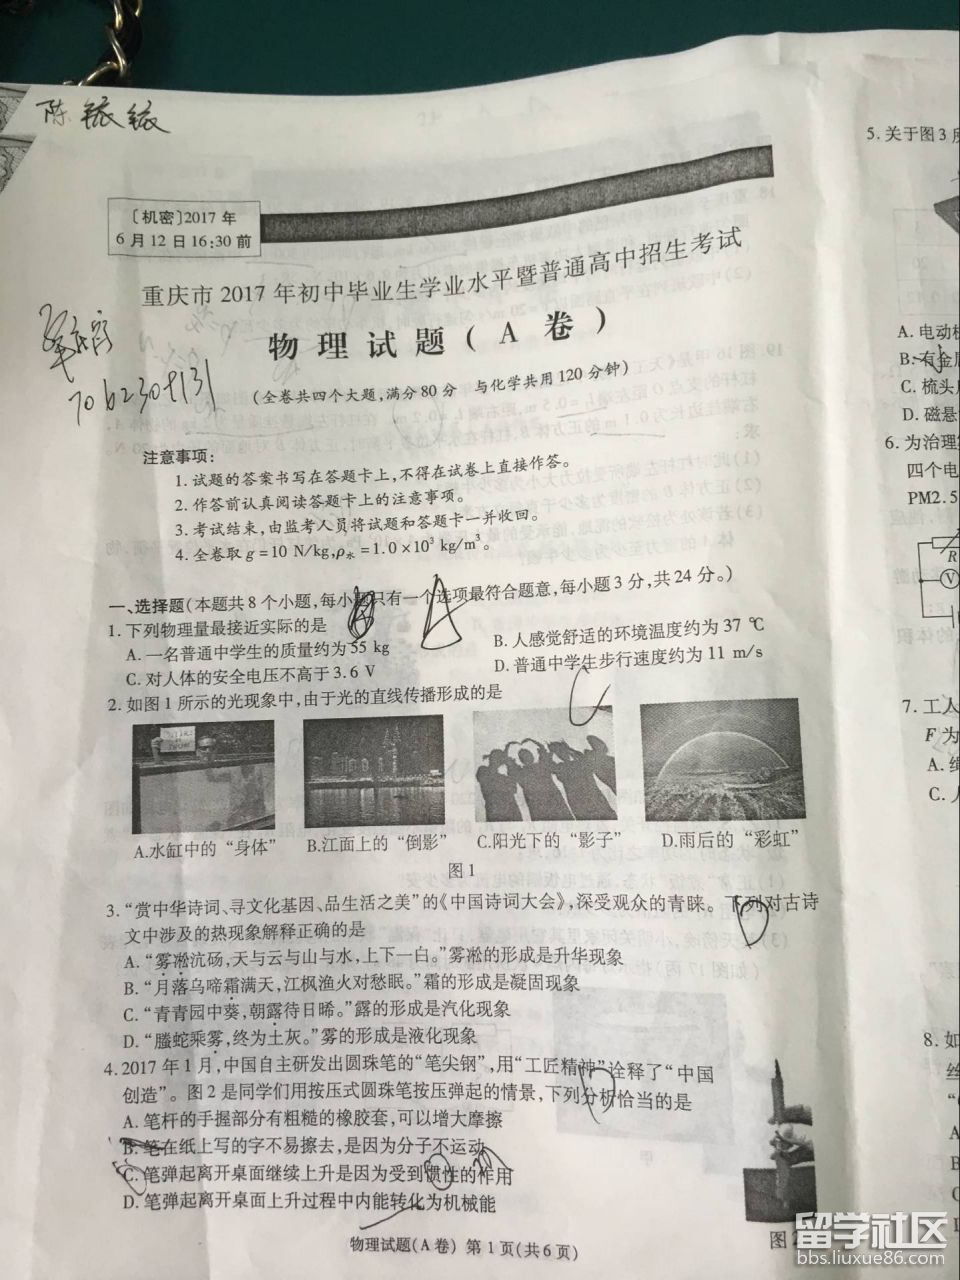 陈
〔机密〕2017 年
6 月 12 日 16:30 前
重庆市 2017 年初中毕业生学业水平暨普通高中招生考试
物 理 试 题 ( A 卷 )
(全卷共四个大题,满分 80 分　与化学共用 120 分钟)
注意事项:
1. 试题的答案书写在答题卡上,不得在试卷上直接作答。
2. 作答前认真阅读答题卡上的注意事项。
3. 考试结束,由监考人员将试题和答题卡一并收回。
4. 全卷取 g=10 N/kg,ρ水=1.0×10³ kg/m³。
一、选择题(本题共 8 个小题,每小题只有一个选项最符合题意,每小题 3 分,共 24 分。)
1. 下列物理量最接近实际的是
A. 一名普通中学生的质量约为 55 kg
B. 人感觉舒适的环境温度约为 37 ℃
C. 对人体的安全电压不高于 3.6 V
D. 普通中学生步行速度约为 11 m/s
2. 如图 1 所示的光现象中,由于光的直线传播形成的是
A.水缸中的“身体” B.江面上的“倒影” C.阳光下的“影子” D.雨后的“彩虹”
图 1
3. “赏中华诗词、寻文化基因、品生活之美”的《中国诗词大会》,深受观众的青睐。下列对古诗
文中涉及的热现象解释正确的是
A. “雾凇沆砀,天与云与山与水,上下一白。”雾凇的形成是升华现象
B. “月落乌啼霜满天,江枫渔火对愁眠。”霜的形成是凝固现象
C. “青青园中葵,朝露待日晞。”露的形成是汽化现象
D. “螣蛇乘雾,终为土灰。”雾的形成是液化现象
4. 2017 年 1 月,中国自主研发出圆珠笔的“笔尖钢”,用“工匠精神”诠释了“中国
创造”。图 2 是同学们用按压式圆珠笔按压弹起的情景,下列分析恰当的是
A. 笔杆的手握部分有粗糙的橡胶套,可以增大摩擦
B. 笔在纸上写的字不易擦去,是因为分子不运动
C. 笔弹起离开桌面继续上升是因为受到惯性的作用
D. 笔弹起离开桌面上升过程中内能转化为机械能
图 2
物理试题(A 卷) 第 1 页(共 6 页)
5. 关于图 3
A. 电动机
B. 有金属
C. 梳头
D. 磁悬
6. 为治理
四个电
PM2.5
R
V
7. 工人
F 为
A. 绳
C.
8. 如
A
B
C
留学社区
bbs.liuxue86.com